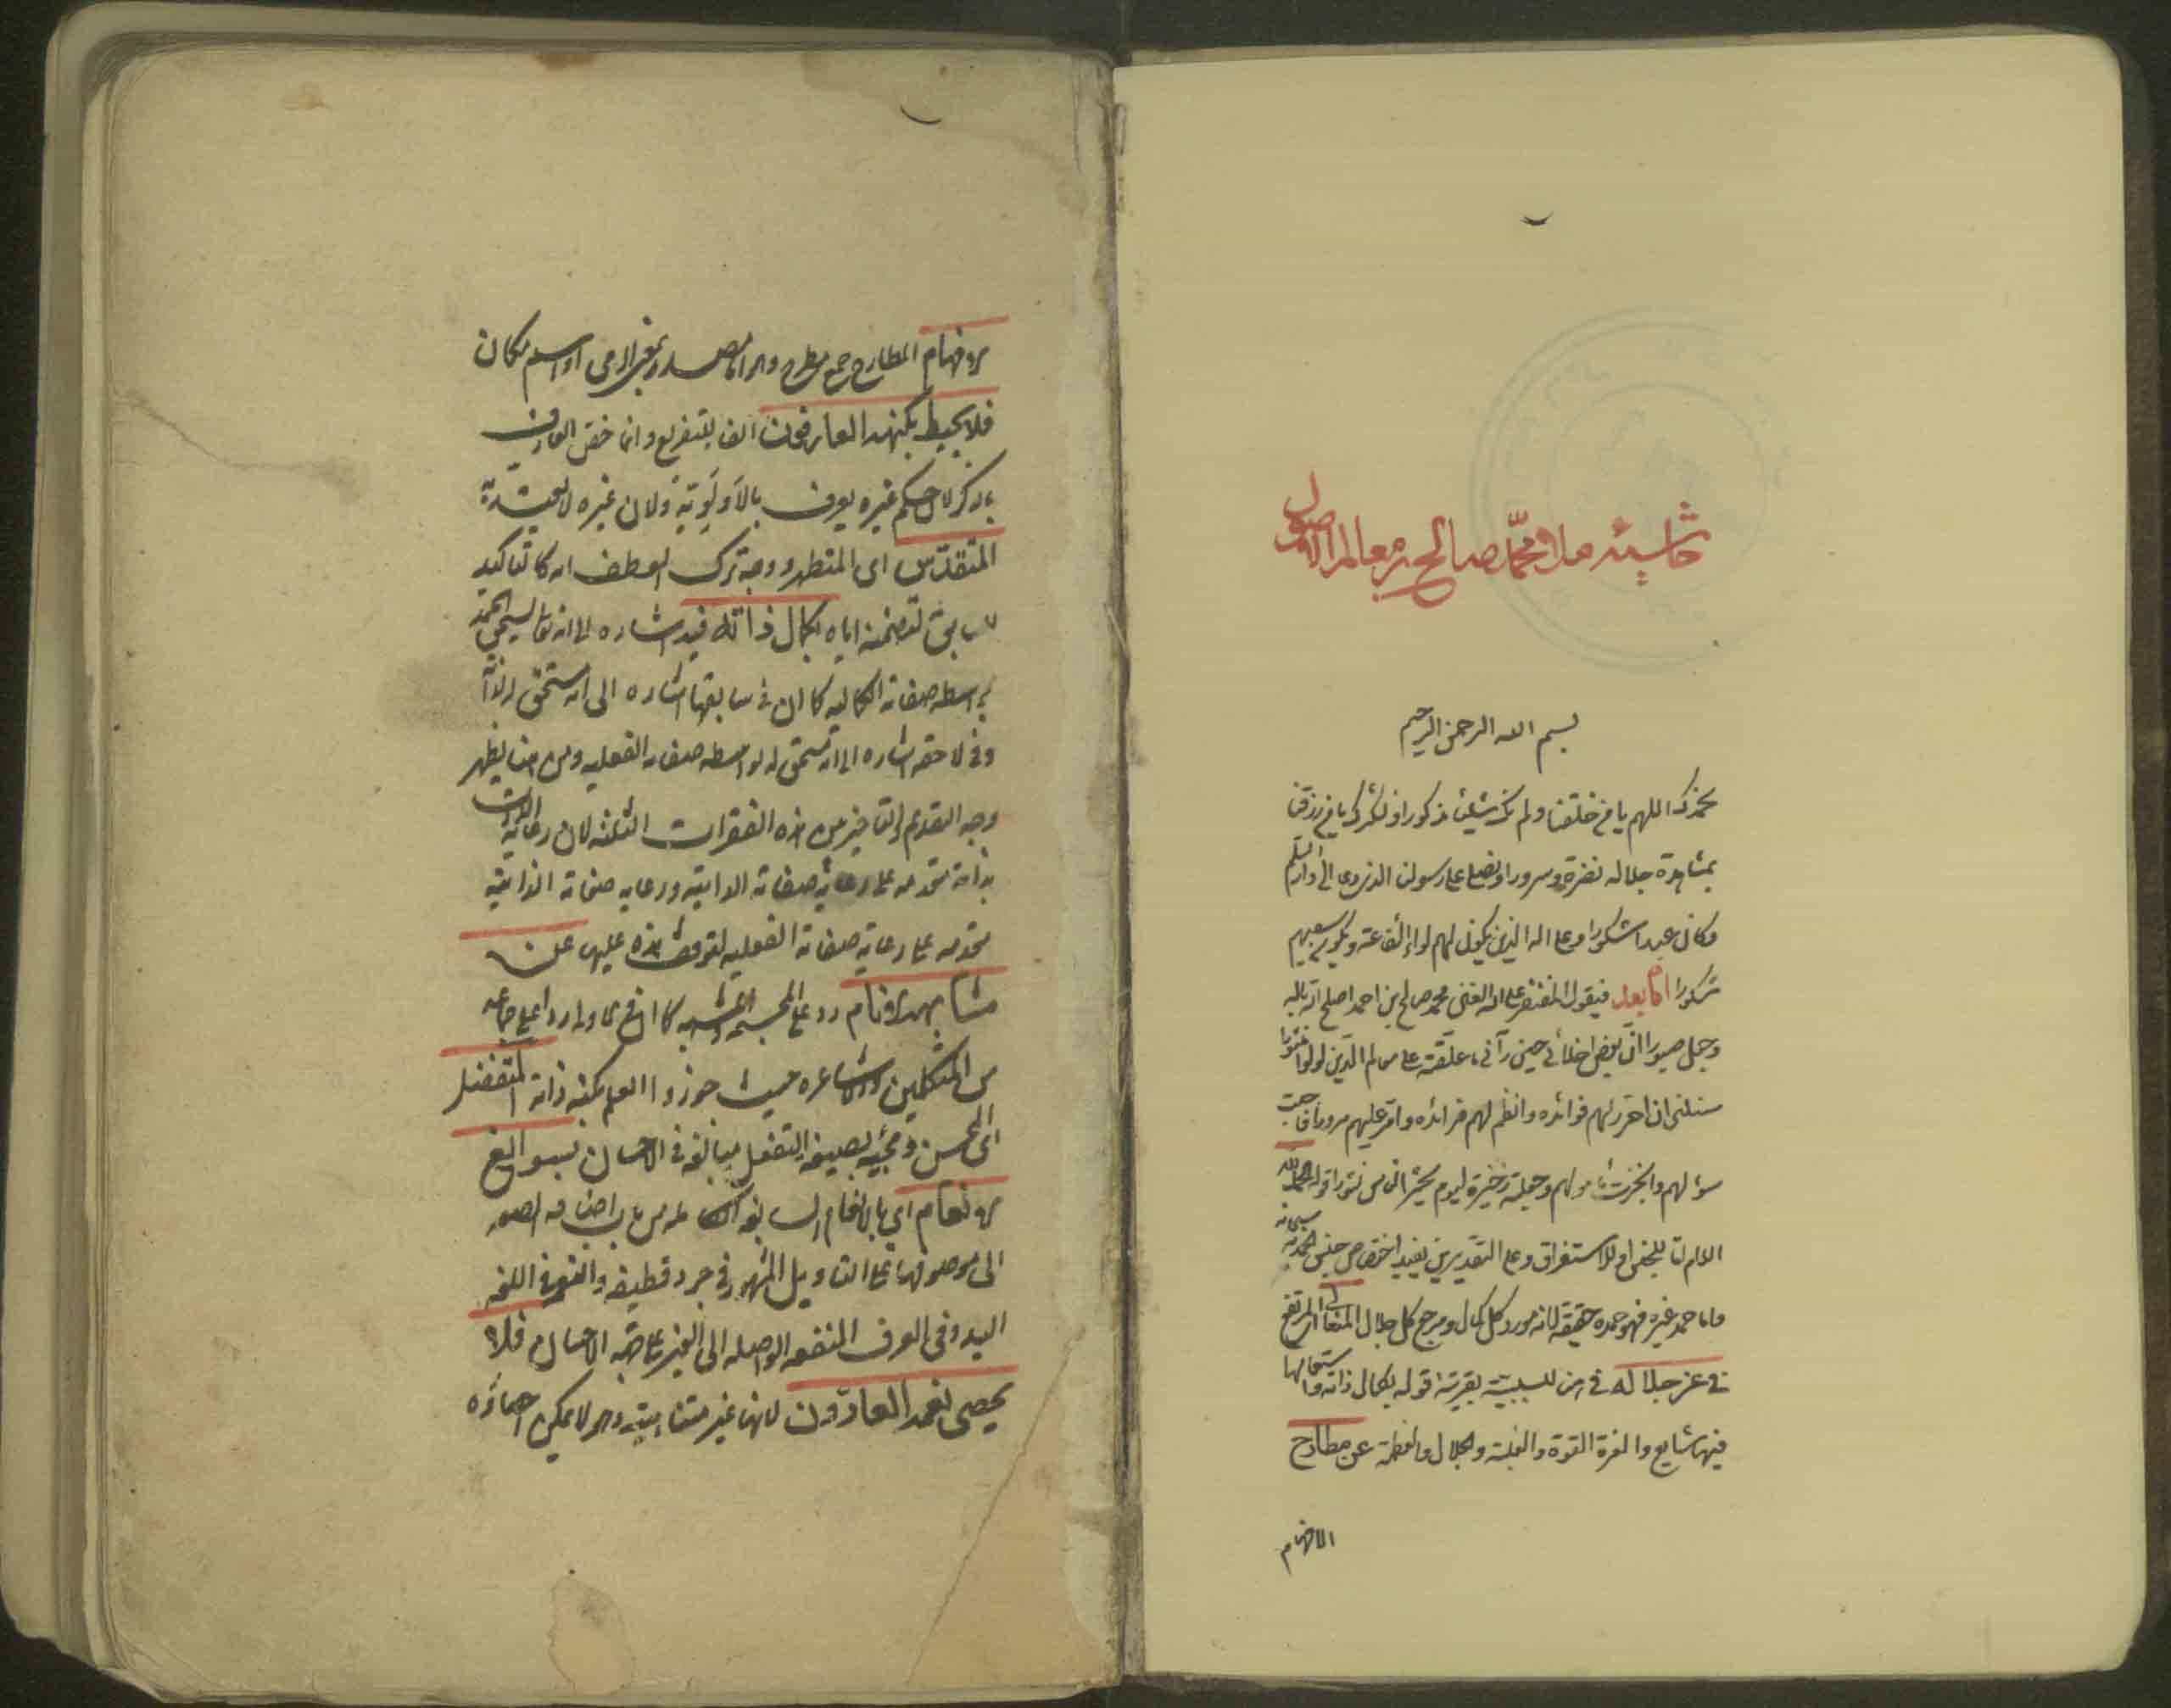 حاشیه ملا محمد صالح بر معالم الاصول
بسم الله الرحمن الرحيم
نحمدك اللهم يا من خلقنا ولم نك شيئا مذكورا ونشكرك يا من رزقنا
بمشاهدة جلاله نضرة وسرورا ونصلي على رسولك الذي دعى الى دار السلم
وكان عبدا شكورا وعلى اله الذين يكون لهم لواء الشفاعة ويكون سعيهم
مشكورا اما بعد فيقول المفتقر الى الله الغني محمد صالح بن احمد اصلح الله باله
وجعل صبورا ان بعض اخلائي حين رآني علقته على معالم الدين لؤلؤا منثورا
سئلني ان احرر لهم فوائده وانظم لهم فرائده واقر عليهم مروما فاجبت
سؤلهم وانجزت مامولهم وجعلته ذخيرة ليوم يحشر الناس نشورا قوله الحمد لله
اللام اما للجنس او للاستغراق وعلى التقديرين يفيد اختصاص جنس الحمد به سبحانه
واما حمد غيره فهو حمده حقيقة لانه مورد كل كمال ومرجع كل جلال المتعالى المرتفع
في عز جلاله في اما للسببية بقرينة قوله بكمال ذاته واستعمالها
فيها شايع والعزة القوة والغلبة والجلال والعظمة عن مطارح
الافهام
الافهام المطارح جمع مطرح وهو اما مصدر بمعنى الرمي او اسم مكان
فلا يحيط بكنهه العارفون الفا للتفريع وانما خص العارف
بالذكر لان حكم غيره يعرف بالاولوية ولان غيره لا يعتد به
المتقدس اى المتطهر ووجه ترك العطف انه كالتاكيد
للسابق لتضمنه اياه بكمال ذاته فيه اشاره الى انه تعالى يستحق الحمد
بواسطه صفاته الكماليه كما ان في سابقها اشاره الى انه مستحق له لذاته
وفي لاحقه اشاره الى انه مستحق له بواسطه صفاته الفعليه ومن هنا يظهر
وجه التقديم والتاخير من هذه الفقرات الثلثه لان رعاية
ذاته مقدمه على رعايه صفاته الذاتيه ورعايه صفاته الذاتيه
مقدمه على رعاية صفاته الفعليه لتوقف هذه عليها عن
مشابهة الانام رد على المجسمه والمشبهه كما ان في الاول ردا على جماعه
من المتكلمين والاشاعره حيث جوزوا العلم بكنه ذاته المتفضل
اى المحسن ومجيئه بصيغه التفعل مبالغه في الاحسان بسوابغ
الانعام اى بالانعام السابغه الكامله من باب اضافه الصفه
الى موصوفها على التاويل المشهور في جرد قطيفه والنعمه في اللغه
اليد وفي العرف المنفعه الواصله الى الغير على جهه الاحسان فلا
يحصى نعمه العادون لانها غير متناهيه وهو لا يمكن احصاؤه